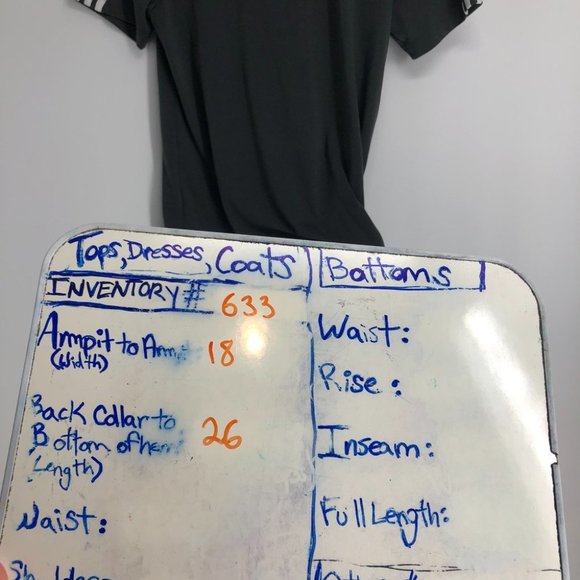 Tops, Dresses, Coats
INVENTORY # 633
Armpit to Arm 18
(Width)
Back Collar to
Bottom of hem 26
Length)
Waist:
Bottoms
Waist:
Rise:
Inseam:
Full Length: